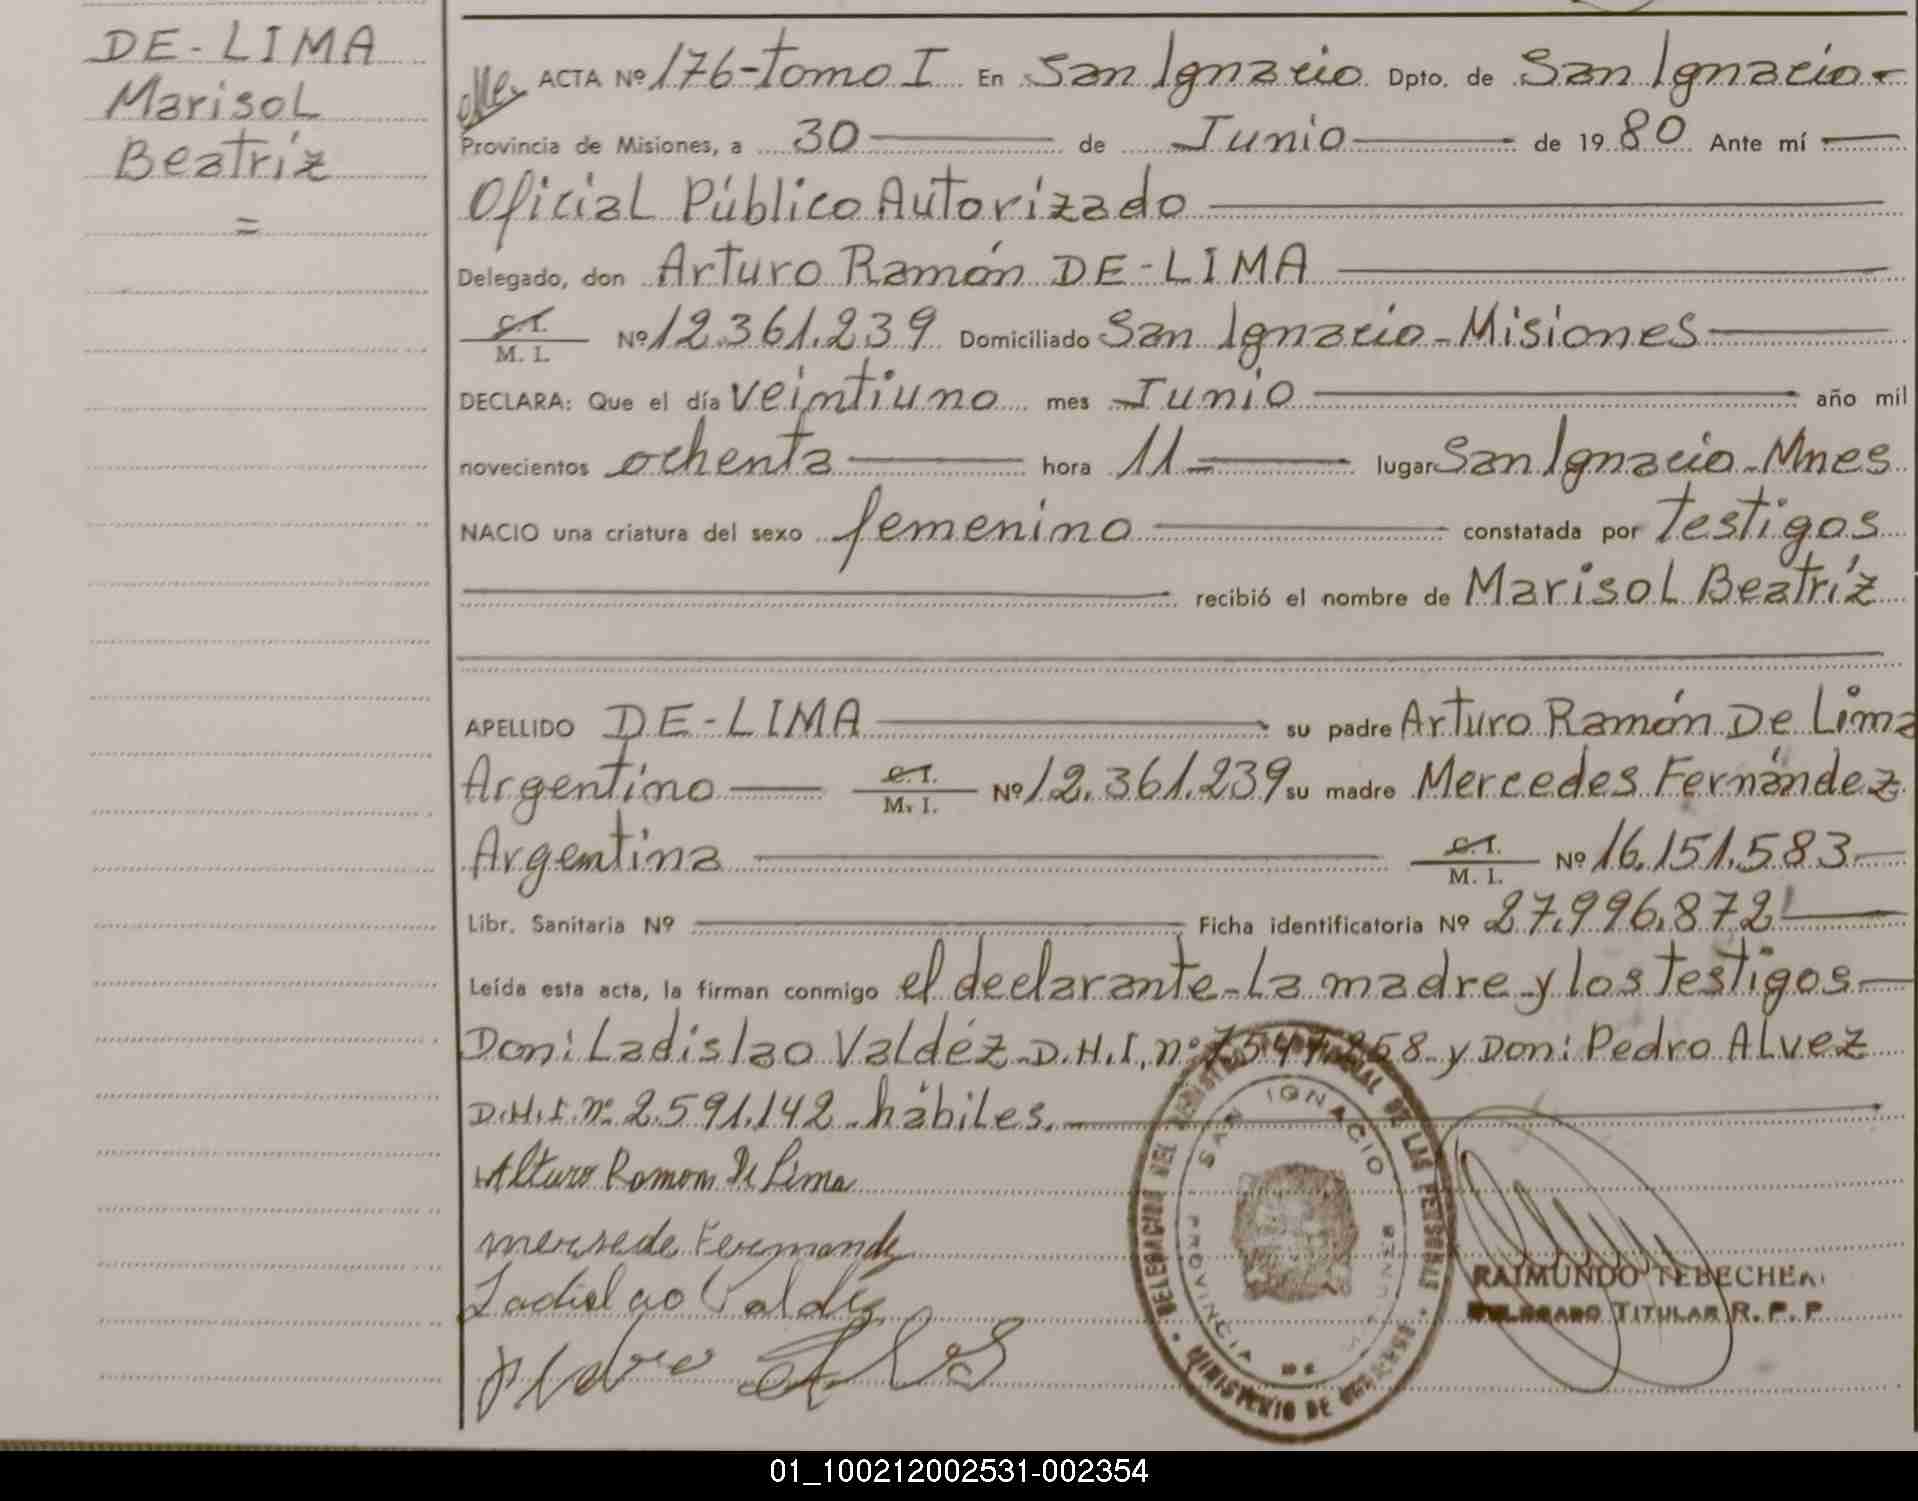 DE-LIMA
Marisol
Beatríz
=
ACTA Nº 176-tomo I En San Ignacio Dpto. de San Ignacio-
Provincia de Misiones, a 30 de Junio de 19 80 Ante mí
Oficial Público Autorizado
Delegado, don Arturo Ramón DE-LIMA
C.I.
M. I. Nº 12.361.239 Domiciliado San Ignacio-Misiones
DECLARA: Que el día veintiuno mes Junio año mil
novecientos ochenta hora 11- lugar San Ignacio-Mnes
NACIO una criatura del sexo femenino constatada por testigos
recibió el nombre de Marisol Beatríz
APELLIDO DE-LIMA su padre Arturo Ramón De Lima
Argentino C.I.
M. I. Nº 12.361.239 su madre Mercedes Fernández
Argentina C.I.
M. I. Nº 16.151.583
Libr. Sanitaria Nº Ficha identificatoria Nº 27.996.872
Leída esta acta, la firman conmigo el declarante-la madre y los testigos
Don: Ladislao Valdéz-D.H.I. nº y Don: Pedro Alvez
D.H.I. nº 2.591.142-hábiles.
Arturo Ramon De Lima
mersede Fernande
Ladislao Valdez
DELEGACION DEL REGISTRO PROVINCIAL DE LAS PERSONAS
SAN IGNACIO
PROVINCIA DE MISIONES
MINISTERIO DE GOBIERNO
RAIMUNDO TEBECHERI
DELEGADO TITULAR R. P. P.
01_100212002531-002354